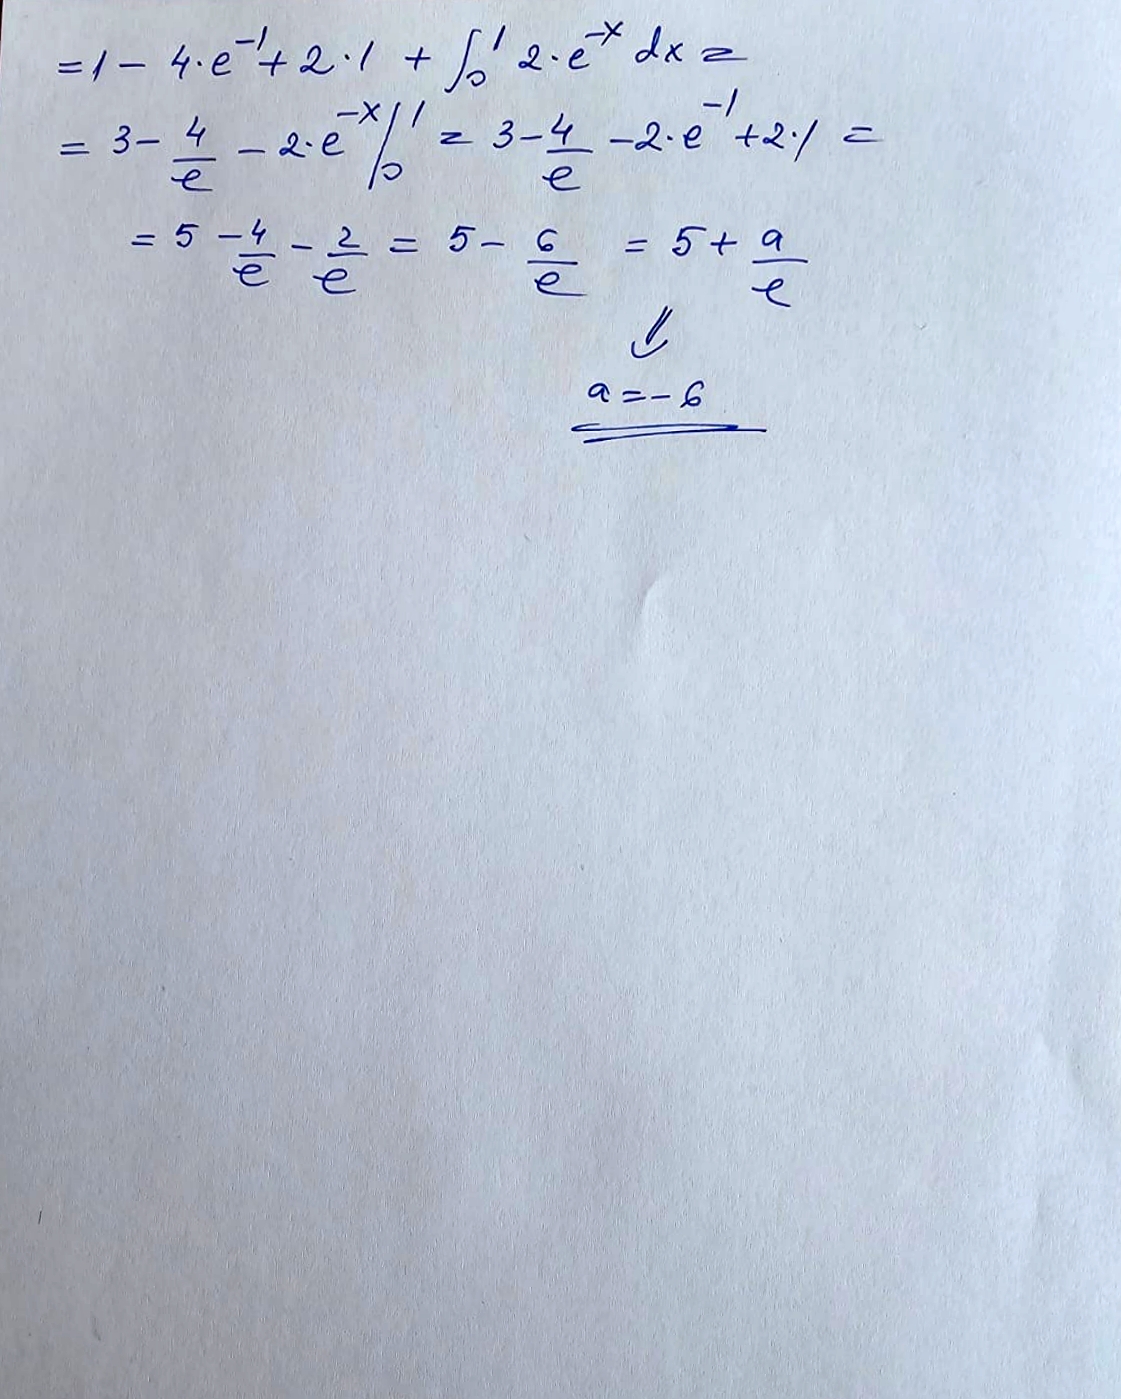 = 1 - 4·e^{-1} + 2·1 + ∫_0^1 2·e^{-x} dx =
= 3 - 4/e - 2·e^{-x} |_0^1 = 3 - 4/e - 2·e^{-1} + 2·1 =
= 5 - 4/e - 2/e = 5 - 6/e = 5 + a/e
⇓
a = -6